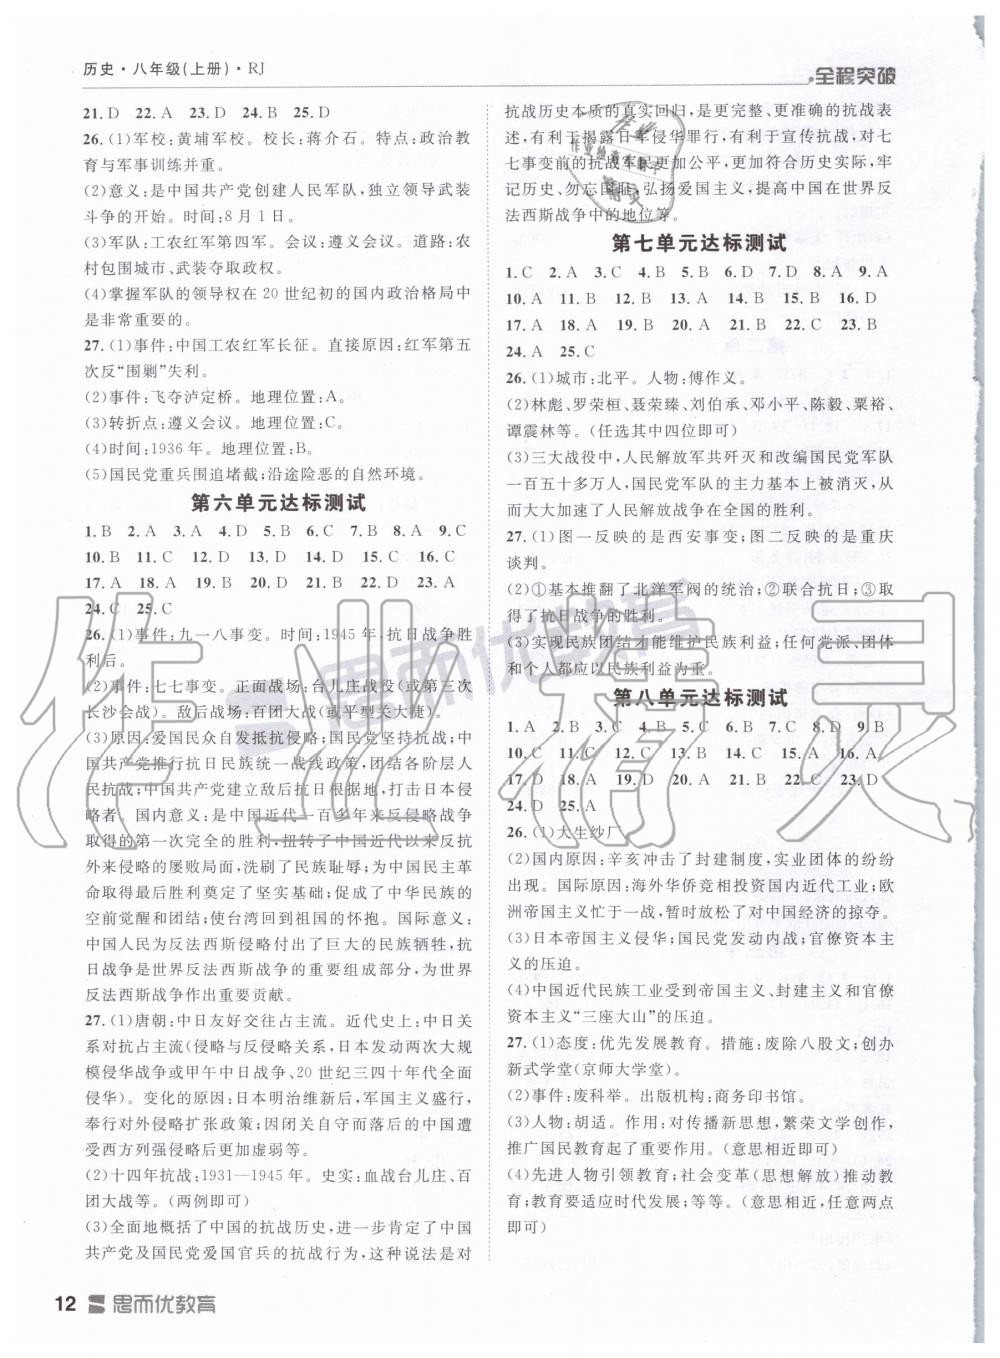 历史·八年级(上册)·RJ
全程突破
21. D 22. A 23. D 24. B 25. D
26. (1)军校:黄埔军校。校长:蒋介石。特点:政治教
育与军事训练并重。
(2)意义:是中国共产党创建人民军队,独立领导武装
斗争的开始。时间:8月1日。
(3)军队:工农红军第四军。会议:遵义会议。道路:农
村包围城市、武装夺取政权。
(4)掌握军队的领导权在 20 世纪初的国内政治格局中
是非常重要的。
27. (1)事件:中国工农红军长征。直接原因:红军第五
次反“围剿”失利。
(2)事件:飞夺泸定桥。地理位置:A。
(3)转折点:遵义会议。地理位置:C。
(4)时间:1936 年。地理位置:B。
(5)国民党重兵围追堵截;沿途险恶的自然环境。
第六单元达标测试
1. B 2. A 3. A 4. D 5. B 6. C 7. B 8. A 9. C
10. B 11. C 12. D 13. D 14. D 15. C 16. C
17. A 18. A 19. B 20. D 21. A 22. D 23. C
24. C 25. C
26. (1)事件:九一八事变。时间:1945 年,抗日战争胜
利后。
(2)事件:七七事变。正面战场:台儿庄战役(或第三次
长沙会战)。敌后战场:百团大战(或平型关大捷)。
(3)原因:爱国民众自发抵抗侵略;国民党坚持抗战;中
国共产党推行抗日民族统一战线政策,团结各阶层人
民抗战;中国共产党建立敌后抗日根据地,打击日本侵
略者。国内意义:是中国近代一百多年来反侵略战争
取得的第一次完全的胜利,扭转了中国近代以来反抗
外来侵略的屡败局面,洗刷了民族耻辱;为中国民主革
命取得最后胜利奠定了坚实基础;促成了中华民族的
空前觉醒和团结;使台湾回到祖国的怀抱。国际意义:
中国人民为反法西斯侵略付出了巨大的民族牺牲,抗
日战争是世界反法西斯战争的重要组成部分,为世界
反法西斯战争作出重要贡献。
27. (1)唐朝:中日友好交往占主流。近代史上:中日关
系对抗占主流(侵略与反侵略),日本发动两次大规
模侵华战争或甲午中日战争、20 世纪三四十年代全面
侵华)。变化的原因:日本明治维新后,军国主义盛行,
奉行对外侵略扩张政策;因闭关自守落后的中国遭
受西方列强侵略后更加虚弱等。
(2)十四年抗战:1931—1945 年。史实:血战台儿庄、百
团大战等。(两例即可)
(3)全面地概括了中国的抗战历史,进一步肯定了中国
共产党及国民党爱国官兵的抗战行为,这种说法是对
抗战历史本质的真实回归,是更完整、更准确的抗战表
述,有利于揭露日军侵华罪行,有利于宣传抗战,对七
七事变前的抗战军民更加公平,更加符合历史实际,牢
记历史、勿忘国耻,弘扬爱国主义,提高中国在世界反
法西斯战争中的地位等。
第七单元达标测试
1. C 2. A 3. C 4. B 5. B 6. D 7. D 8. A 9. A
10. A 11. B 12. D 13. A 14. B 15. B 16. D
17. A 18. A 19. B 20. A 21. B 22. C 23. B
24. A 25. C
26. (1)城市:北平。人物:傅作义。
(2)林彪、罗荣桓、聂荣臻、刘伯承、邓小平、陈毅、粟裕、
谭震林等。(任选其中四位即可)
(3)三大战役中,人民解放军共歼灭和改编国民党军队
一百五十多万人,国民党军队的主力基本上被消灭,从
而大大加速了人民解放战争在全国的胜利。
27. (1)图一反映的是西安事变;图二反映的是重庆
谈判。
(2)①基本推翻了北洋军阀的统治;②联合抗日;③取
得了抗日战争的胜利。
(3)实现民族团结才能维护民族利益;任何党派、团体
和个人都应以民族利益为重。
第八单元达标测试
1. A 2. B 3. C 4. B 5. C 6. B 7. C 8. D 9. B
10. C 11. C 12. C 13. B 14. C 15. A 16. A
17. D 18. A 19. D 20. A 21. B 22. A 23. D
24. D 25. A
26. (1)大生纱厂。
(2)国内原因:辛亥冲击了封建制度,实业团体的纷纷
出现。国际原因:海外华侨竞相投资国内近代工业;欧
洲帝国主义忙于一战,暂时放松了对中国经济的掠夺。
(3)日本帝国主义侵华;国民党发动内战;官僚资本主
义的压迫。
(4)中国近代民族工业受到帝国主义、封建主义和官僚
资本主义“三座大山”的压迫。
27. (1)态度:优先发展教育。措施:废除八股文;创办
新式学堂(京师大学堂)。
(2)事件:废科举。出版机构:商务印书馆。
(3)人物:胡适。作用:对传播新思想,繁荣文学创作,
推广国民教育起了重要作用。(意思相近即可)
(4)先进人物引领教育;社会变革(思想解放)推动教
育;教育要适应时代发展;等等。(意思相近,任意两点
即可)
12 思而优教育
思而优教育
作业精灵